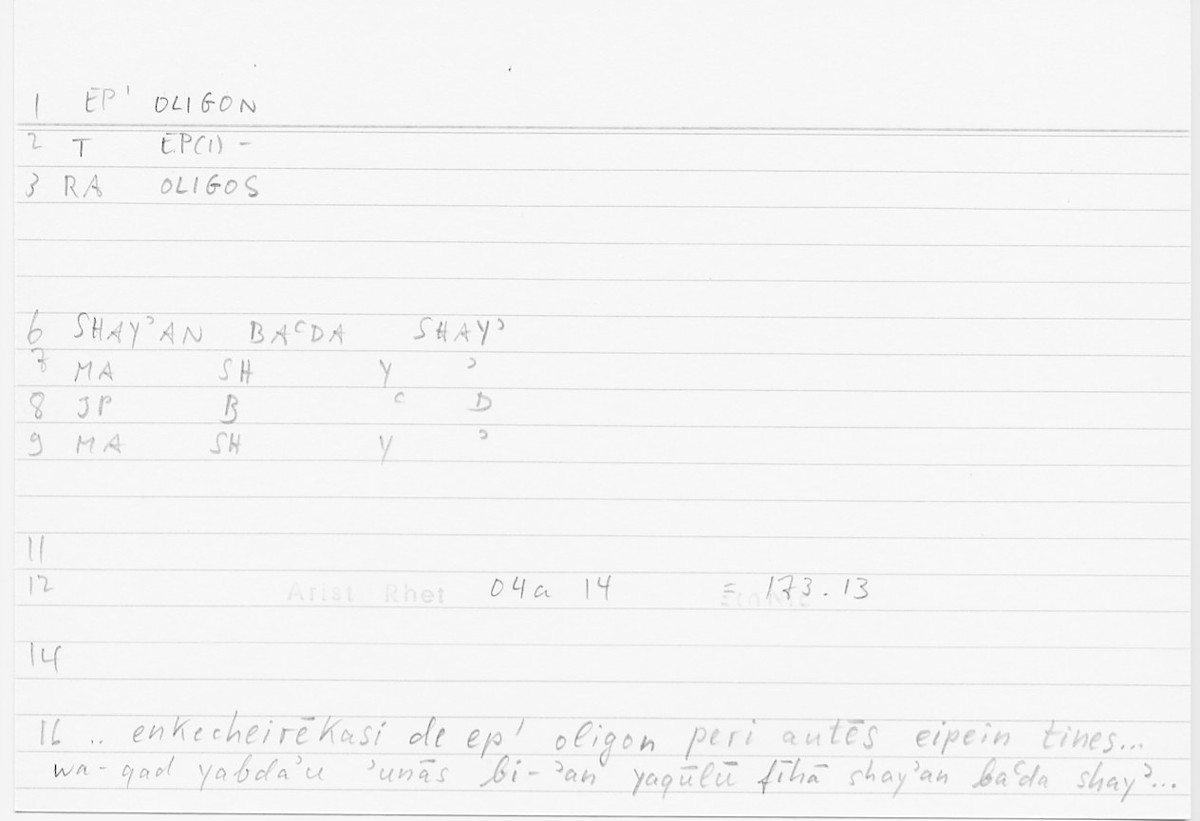 1 EP' OLIGON
2 T EP(I) -
3 RA OLIGOS
6 SHAYʾAN BAʿDA SHAYʾ
7 MA SH Y ʾ
8 JP B ʿ D
9 MA SH Y ʾ
11
12 Arist Rhet 04a 14 = 173.13
14
16 .. enkecheirēkasi de ep' oligon peri autēs eipein tines...
wa-qad yabdaʾu ʾunās bi-ʾan yaqūlū fīhā shayʾan baʿda shayʾ...